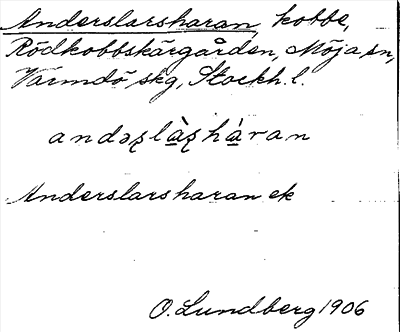 Anderslarsharan, kobbe,
Rödkobbskärgården, Möja sn,
Värmdö skg, Stockh. l.
andəʂlàʂhàran
Anderslarsharan ek
O. Lundberg 1906